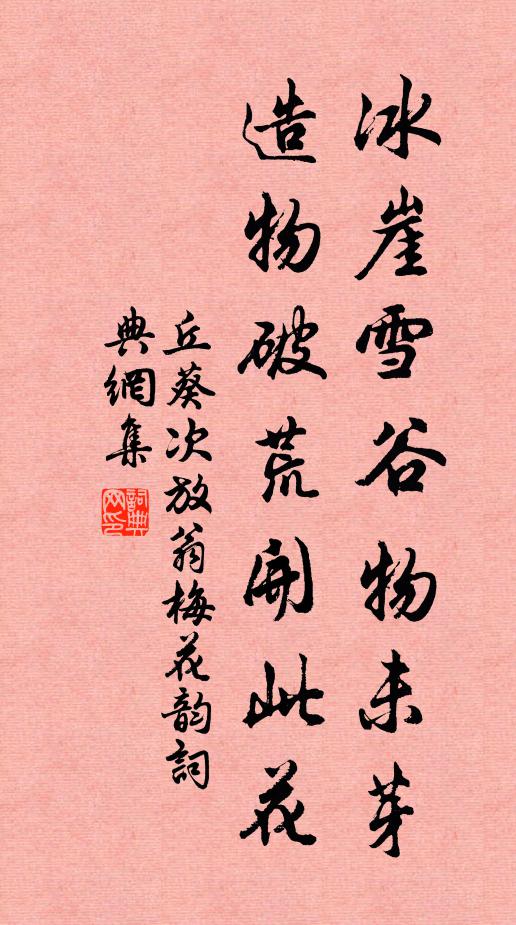 冰崖雪谷物未芽
造物破荒開此花
丘葵次放翁梅花韵詞
典網集
詞典網印